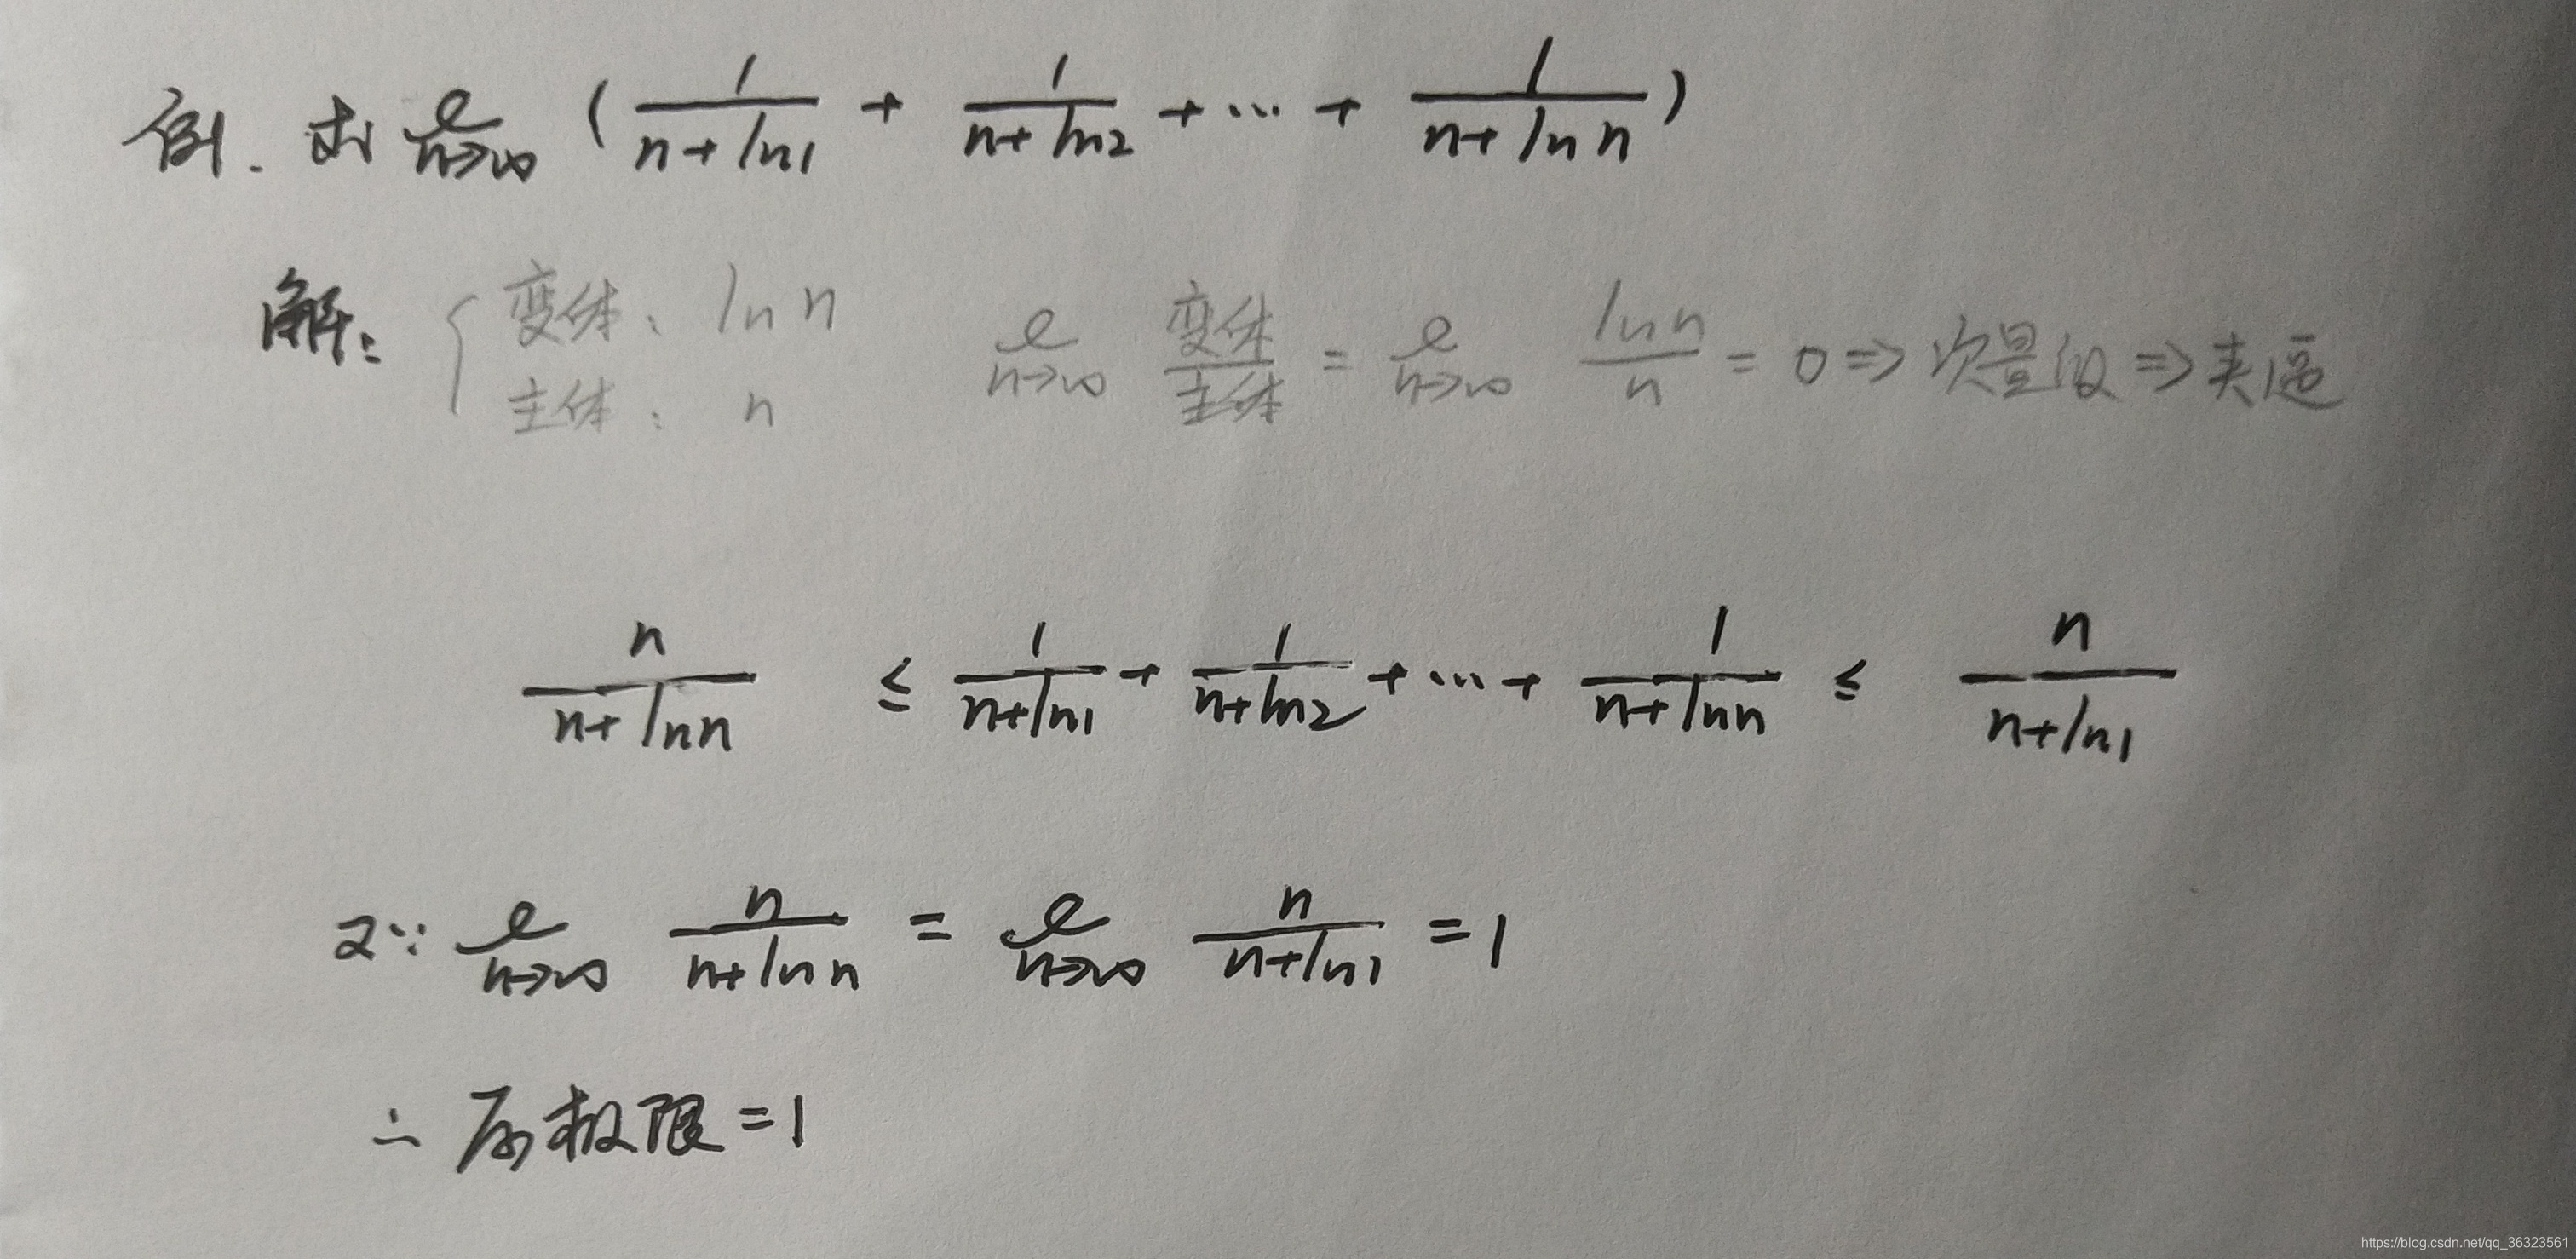 例. 求 lim n→∞ (1/(n+ln1) + 1/(n+ln2) + ... + 1/(n+ln n))
解: { 变体: ln n 主体: n lim n→∞ 变体/主体 = lim n→∞ ln n/n = 0 => 次量级 => 夹逼
n/(n+ln n) ≤ 1/(n+ln1) + 1/(n+ln2) + ... + 1/(n+ln n) ≤ n/(n+ln1)
又∵ lim n→∞ n/(n+ln n) = lim n→∞ n/(n+ln1) = 1
∴ 原极限 = 1
https://blog.csdn.net/qq_36323561